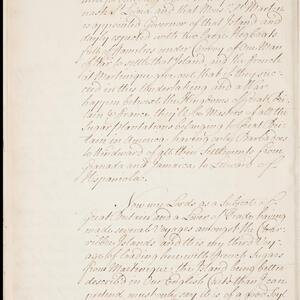 nash St Lucia and that Mons.r St Martin
is appointed Governor of that Island and
dayly expected with two large Flyboats
full of Families under Convoy of One Man
of War to settle that Island, and the French
at Martinique give out that if they suc=
ceed in this Undertaking and a War
happen betwext the Kingdoms of Great Bri=
tain & France they'll be Masters of all the
Sugar Plantations belonging to Great Bri=
tain in America having only Barbadoes
to Windward of all their Settlements from
Granada and Jamaica to Leeward of
Hispaniola.
Now my Lords as a Subject of
Great Britain and a Lover of Trade having
made several Voyages amongst the Char=
ribbee Islands and this my third Voy=
age by loading here with French Sugars
from Martinique, the Island being better
described in Our English Charts than I can
pretend must only say it is of a good Soyl